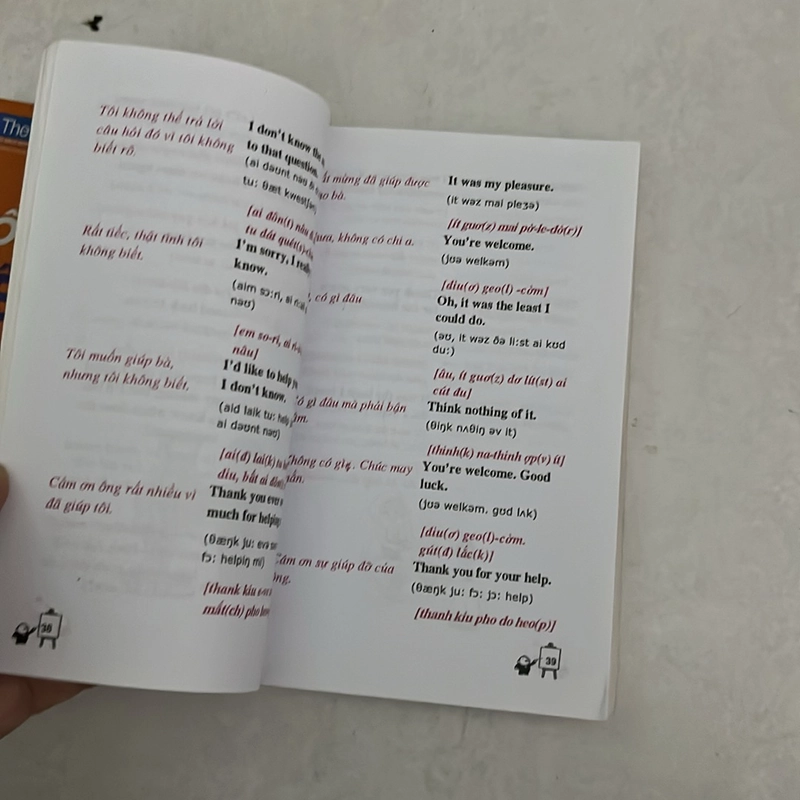 The
Tôi không thể trả lời
câu hỏi đó vì tôi không
biết rõ.
I don't know the
to that question.
(ai dəʊnt nəʊ
tu: θæt kwestʃən)
[ai đôn(t) nâu
tu đát quét(s)
Rất tiếc, thật tình tôi
không biết.
I'm sorry, I really
know.
(aim sɔ:ri, ai
nəʊ)
[em so-ri, ai ri
nâu]
Tôi muốn giúp bà,
nhưng tôi không biết.
I'd like to help
I don't know.
(aid laik tu: help
ai dəʊnt nəʊ)
[ai(đ) lai(k) tu
điu, bắt ai
Cảm ơn ông rất nhiều vì
đã giúp tôi.
Thank you ever
much for helping
(θæŋk ju:
fɔ: helpiŋ mi)
[thank kiu
mất(ch) pho
38
mừng đã giúp được
bà.
It was my pleasure.
(it wəz mai pleʒə)
[ít guơ(z) mai pờ-le-dờ(r)]
không có chi ạ.
You're welcome.
(jʊə welkəm)
[điu(ơ) geo(l) -cờm]
có gì đâu
Oh, it was the least I
could do.
(əʊ, it wəz ðə li:st ai kʊd
du:)
[âu, ít guơ(z) dơ lít(st) ai
cút đu]
gì đâu mà phải bận
Think nothing of it.
(θiŋk nʌθiŋ əv it)
[thinh(k) na-thinh ợp(v) ít]
Không có gì. Chúc may
You're welcome. Good
luck.
(jʊə welkəm. gʊd lʌk)
[điu(ơ) geo(l)-cờm.
gút(đ) lắc(k)]
Cảm ơn sự giúp đỡ của
ông.
Thank you for your help.
(θæŋk ju: fɔ: jɔ: help)
[thanh kíu pho do heo(p)]
39